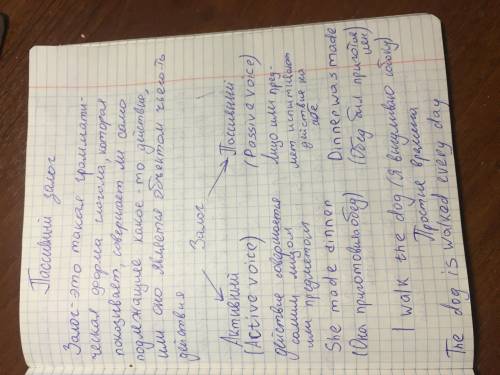 Пассивный залог
Залог-это такая граммати-
ческая форма глагола, которая
показывает, совершает ли само
подлежащее какое-то действие,
или оно является объектом чьего-то
действия
Залог
Активный Пассивный
(Active voice) (Passive voice)
действие совершается лицо или пред-
самим лицом мет испытывают
или предметом действие на
себе
She made dinner Dinner was made
(Она приготовила обед) (Обед был приготов
лен)
I walk the dog (Я выгуливаю собаку)
Простые времена
The dog is walked every day